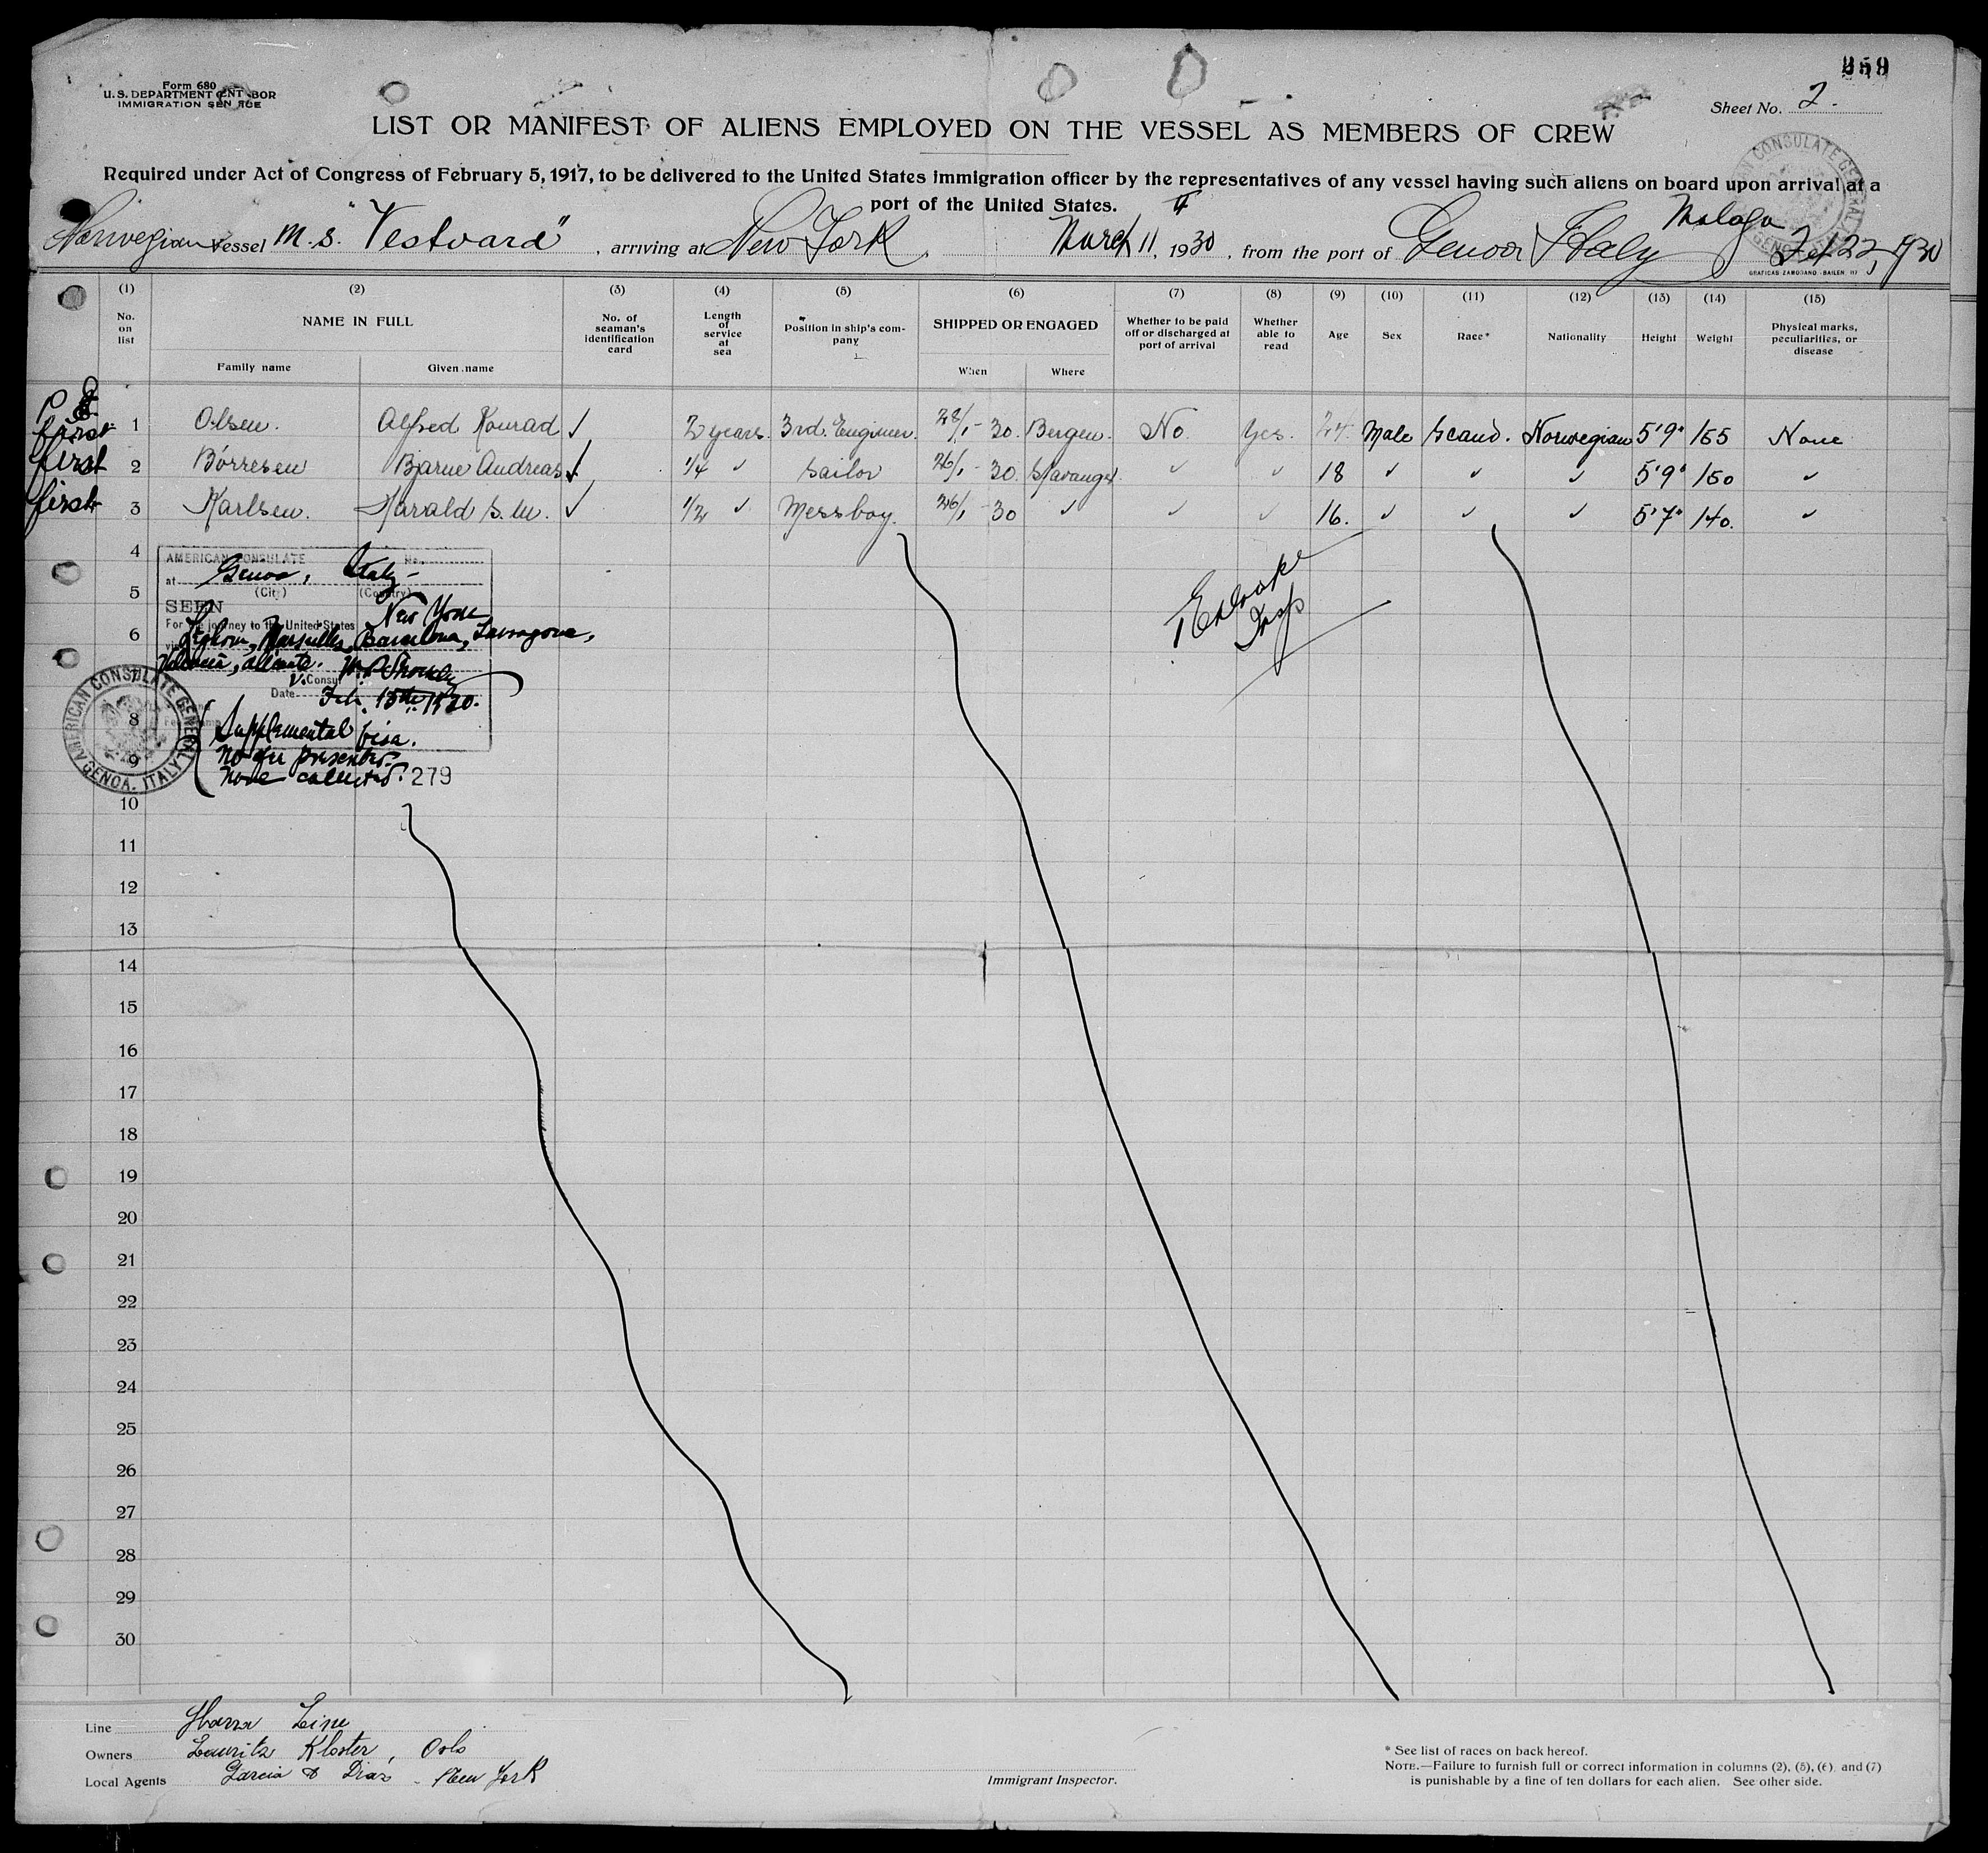 259
Form 680
U. S. DEPARTMENT
IMMIGRATION
Sheet No. 2.
LIST OR MANIFEST OF ALIENS EMPLOYED ON THE VESSEL AS MEMBERS OF CREW
Required under Act of Congress of February 5, 1917, to be delivered to the United States immigration officer by the representatives of any vessel having such aliens on board upon arrival at a
port of the United States.
Malaga
Norwegian Vessel M.S. "Vestvard", arriving at New York, March 11, 1930, from the port of Genoa Italy Feb 22, 1930
(1) (2) (3) (4) (5) (6) (7) (8) (9) (10) (11) (12) (13) (14) (15)
No. on list NAME IN FULL No. of seaman's identification card Length of service at sea Position in ship's company SHIPPED OR ENGAGED Whether to be paid off or discharged at port of arrival Whether able to read Age Sex Race* Nationality Height Weight Physical marks, peculiarities, or disease
Family name Given name When Where
first 1 Olsen. Alfred Konrad ✓ 2 years. 3rd. Engineer. 28/1-30. Bergen. No. Yes. 24. Male Scand. Norwegian 5'9" 165 None
first 2 Börresen Bjarne Andreas ✓ 1/4 ✓ Sailor 26/1-30. Stavanger. ✓ ✓ 18 ✓ ✓ ✓ 5'9" 160 ✓
first 3 Karlsen. Harald S. M. ✓ 1/2 ✓ Messboy. 26/1-30 ✓ ✓ ✓ 16. ✓ ✓ ✓ 5'7" 140. ✓
4
AMERICAN CONSULATE No.
at Genoa, Italy
(City) (Country)
5
SEEN
New York
For the journey to the United States
6
Leghorn, Marseilles, Barcelona, Tarragona,
Valencia, Alicante.
7
V. Consul
Date Feb. 13th 1930.
AMERICAN CONSULATE GENERAL GENOA, ITALY
8
Supplemental visa.
9
No fee presented.
None collected. 279
Insp
10
11
12
13
14
15
16
17
18
19
20
21
22
23
24
25
26
27
28
29
30
Line Ybarra Line
Owners Lauritz Kloster, Oslo
Local Agents Garcia & Diaz - New York
Immigrant Inspector.
* See list of races on back hereof.
NOTE.—Failure to furnish full or correct information in columns (2), (5), (6), and (7)
is punishable by a fine of ten dollars for each alien. See other side.